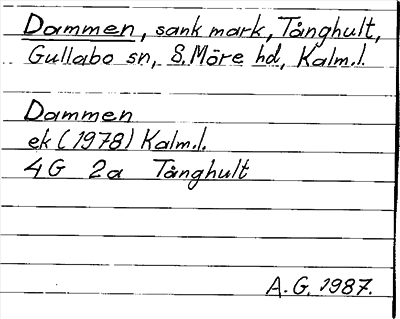 Dammen, sank mark, Tånghult,
Gullabo sn, S. Möre hd, Kalm.l.
Dammen
ek (1978) Kalm.l.
4G 2a Tånghult
A.G. 1987.